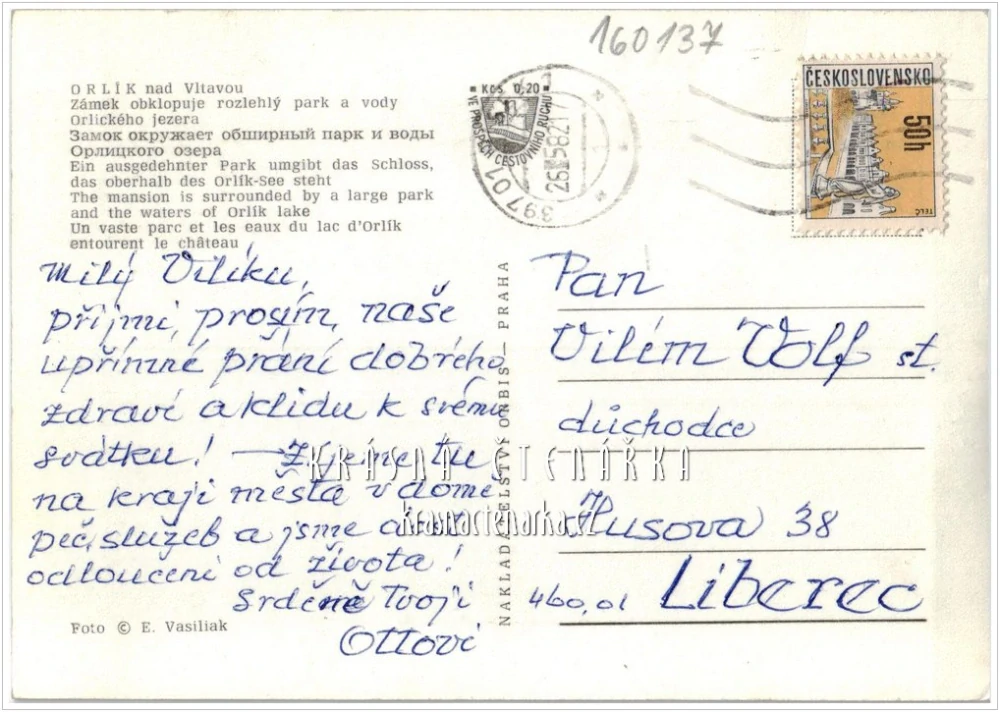 160137
ORLÍK nad Vltavou
Zámek obklopuje rozlehlý park a vody
Orlického jezera
Замок окружает обширный парк и воды
Орлицкого озера
Ein ausgedehnter Park umgibt das Schloss,
das oberhalb des Orlík-See steht
The mansion is surrounded by a large park
and the waters of Orlík lake
Un vaste parc et les eaux du lac d'Orlík
entourent le château
Kčs 0,20
VE PROSPĚCH CESTOVNÍHO RUCHU
397 01
ČESKOSLOVENSKO
50h
TELČ
Milý Vilíku,
přijmi, prosím, naše
upřímné přání dobrého
zdraví a klidu k svému
svátku! — Žijeme tu
na kraji města v domě
peč. služeb a jsme
odloučeni od života!
Srdečně Tvoji
Ottovi
Foto © E. Vasiliak
NAKLADATELSTVÍ ORBIS — PRAHA
Pan
Vilém Wolf st.
důchodce
Husova 38
460,01 Liberec
KRÁSNÁ ČTENÁŘKA
krasnactenarka.cz